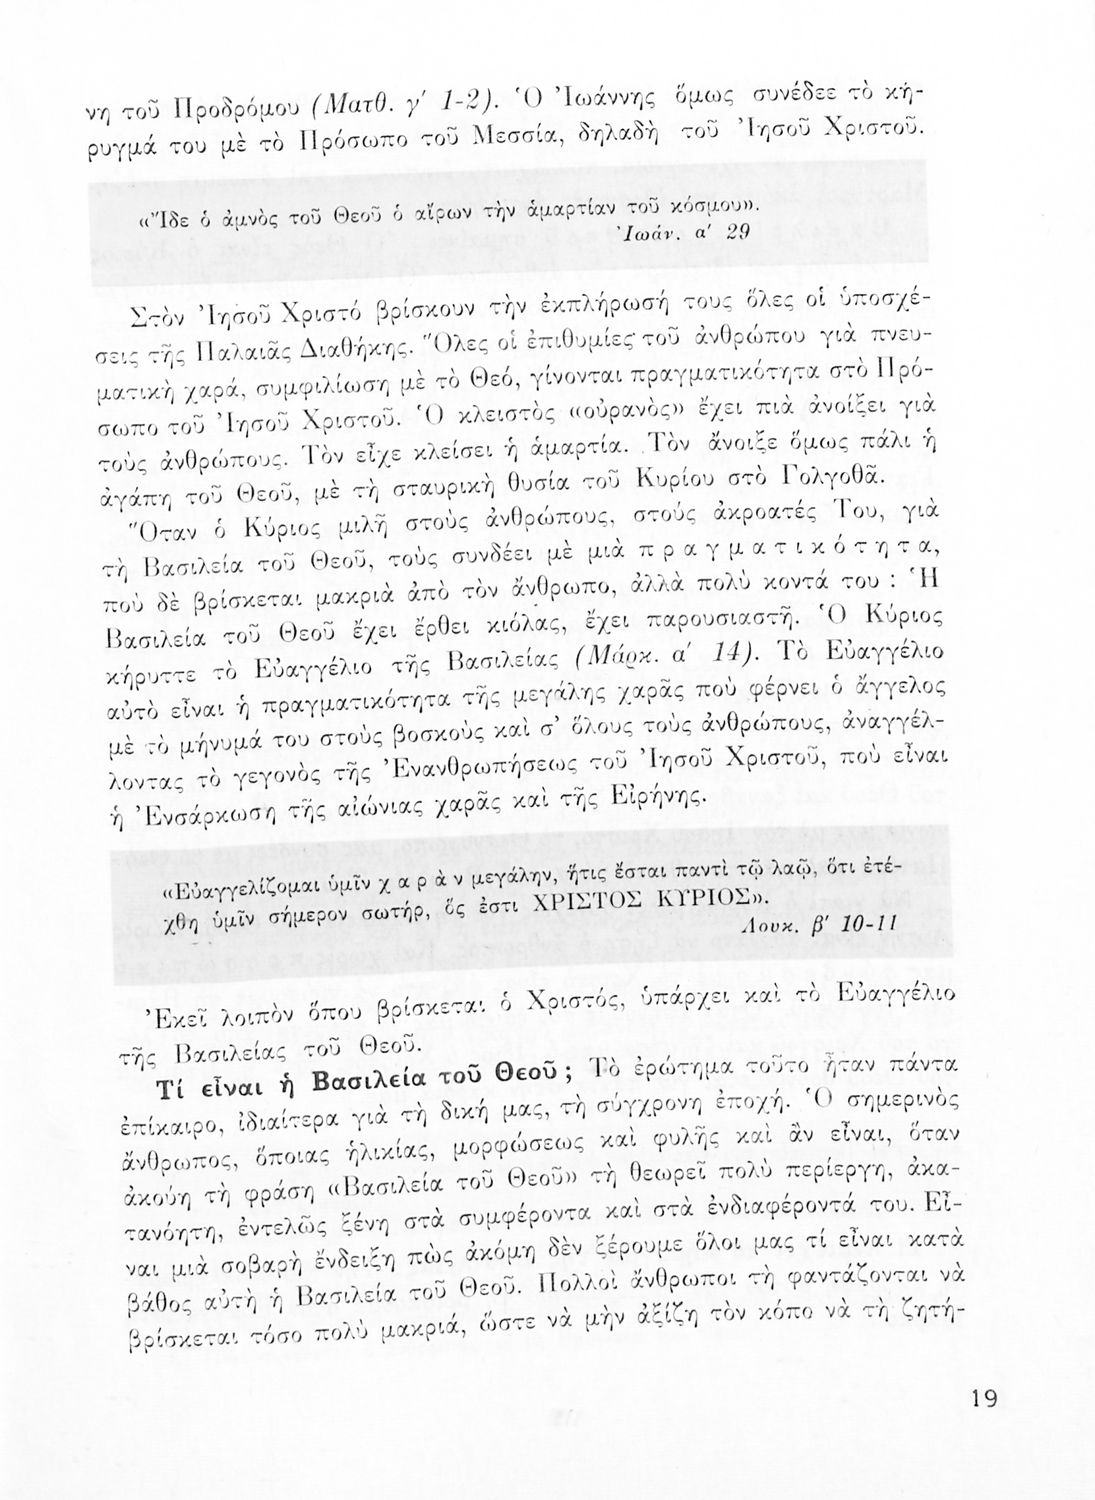 νη τοῦ Προδρόμου (Ματθ. γ' 1-2). Ὁ Ἰωάννης ὅμως συνέδεε τὸ κή-
ρυγμά του μὲ τὸ Πρόσωπο τοῦ Μεσσία, δηλαδὴ τοῦ Ἰησοῦ Χριστοῦ.
«Ἴδε ὁ ἀμνὸς τοῦ Θεοῦ ὁ αἴρων τὴν ἁμαρτίαν τοῦ κόσμου».
Ἰωάν. α' 29
Στὸν Ἰησοῦ Χριστό βρίσκουν τὴν ἐκπλήρωσή τους ὅλες οἱ ὑποσχέ-
σεις τῆς Παλαιᾶς Διαθήκης. Ὅλες οἱ ἐπιθυμίες τοῦ ἀνθρώπου γιὰ πνευ-
ματικὴ χαρά, συμφιλίωση μὲ τὸ Θεό, γίνονται πραγματικότητα στὸ Πρό-
σωπο τοῦ Ἰησοῦ Χριστοῦ. Ὁ κλειστὸς «οὐρανὸς» ἔχει πιὰ ἀνοίξει γιὰ
τοὺς ἀνθρώπους. Τὸν εἶχε κλείσει ἡ ἁμαρτία. Τὸν ἄνοιξε ὅμως πάλι ἡ
ἀγάπη τοῦ Θεοῦ, μὲ τὴ σταυρικὴ θυσία τοῦ Κυρίου στὸ Γολγοθᾶ.
Ὅταν ὁ Κύριος μιλῆ στοὺς ἀνθρώπους, στούς ἀκροατές Του, γιὰ
τὴ Βασιλεία τοῦ Θεοῦ, τοὺς συνδέει μὲ μιὰ πραγματικότητα,
ποὺ δὲ βρίσκεται μακριὰ ἀπὸ τὸν ἄνθρωπο, ἀλλὰ πολὺ κοντά του : Ἡ
Βασιλεία τοῦ Θεοῦ ἔχει ἔρθει κιόλας, ἔχει παρουσιαστῆ. Ὁ Κύριος
κήρυττε τὸ Εὐαγγέλιο τῆς Βασιλείας (Μάρκ. α' 14). Τὸ Εὐαγγέλιο
αὐτὸ εἶναι ἡ πραγματικότητα τῆς μεγάλης χαρᾶς ποὺ φέρνει ὁ ἄγγελος
μὲ τὸ μήνυμά του στοὺς βοσκοὺς καὶ σ' ὅλους τοὺς ἀνθρώπους, ἀναγγέλ-
λοντας τὸ γεγονὸς τῆς Ἐνανθρωπήσεως τοῦ Ἰησοῦ Χριστοῦ, ποὺ εἶναι
ἡ Ἐνσάρκωση τῆς αἰώνιας χαρᾶς καὶ τῆς Εἰρήνης.
«Εὐαγγελίζομαι ὑμῖν χαρὰν μεγάλην, ἥτις ἔσται παντὶ τῷ λαῷ, ὅτι ἐτέ-
χθη ὑμῖν σήμερον σωτήρ, ὅς ἐστι ΧΡΙΣΤΟΣ ΚΥΡΙΟΣ».
Λουκ. β' 10-11
Ἐκεῖ λοιπὸν ὅπου βρίσκεται ὁ Χριστός, ὑπάρχει καὶ τὸ Εὐαγγέλιο
τῆς Βασιλείας τοῦ Θεοῦ.
Τί εἶναι ἡ Βασιλεία τοῦ Θεοῦ ; Τὸ ἐρώτημα τοῦτο ἦταν πάντα
ἐπίκαιρο, ἰδιαίτερα γιὰ τὴ δική μας, τὴ σύγχρονη ἐποχή. Ὁ σημερινὸς
ἄνθρωπος, ὅποιας ἡλικίας, μορφώσεως καὶ φυλῆς καὶ ἂν εἶναι, ὅταν
ἀκούη τὴ φράση «Βασιλεία τοῦ Θεοῦ» τὴ θεωρεῖ πολὺ περίεργη, ἀκα-
τανόητη, ἐντελῶς ξένη στὰ συμφέροντα καὶ στὰ ἐνδιαφέροντά του. Εἶ-
ναι μιὰ σοβαρὴ ἔνδειξη πὼς ἀκόμη δὲν ξέρουμε ὅλοι μας τί εἶναι κατὰ
βάθος αὐτὴ ἡ Βασιλεία τοῦ Θεοῦ. Πολλοὶ ἄνθρωποι τὴ φαντάζονται νὰ
βρίσκεται τόσο πολὺ μακριά, ὥστε νὰ μὴν ἀξίζη τὸν κόπο νὰ τὴ ζητή-
19